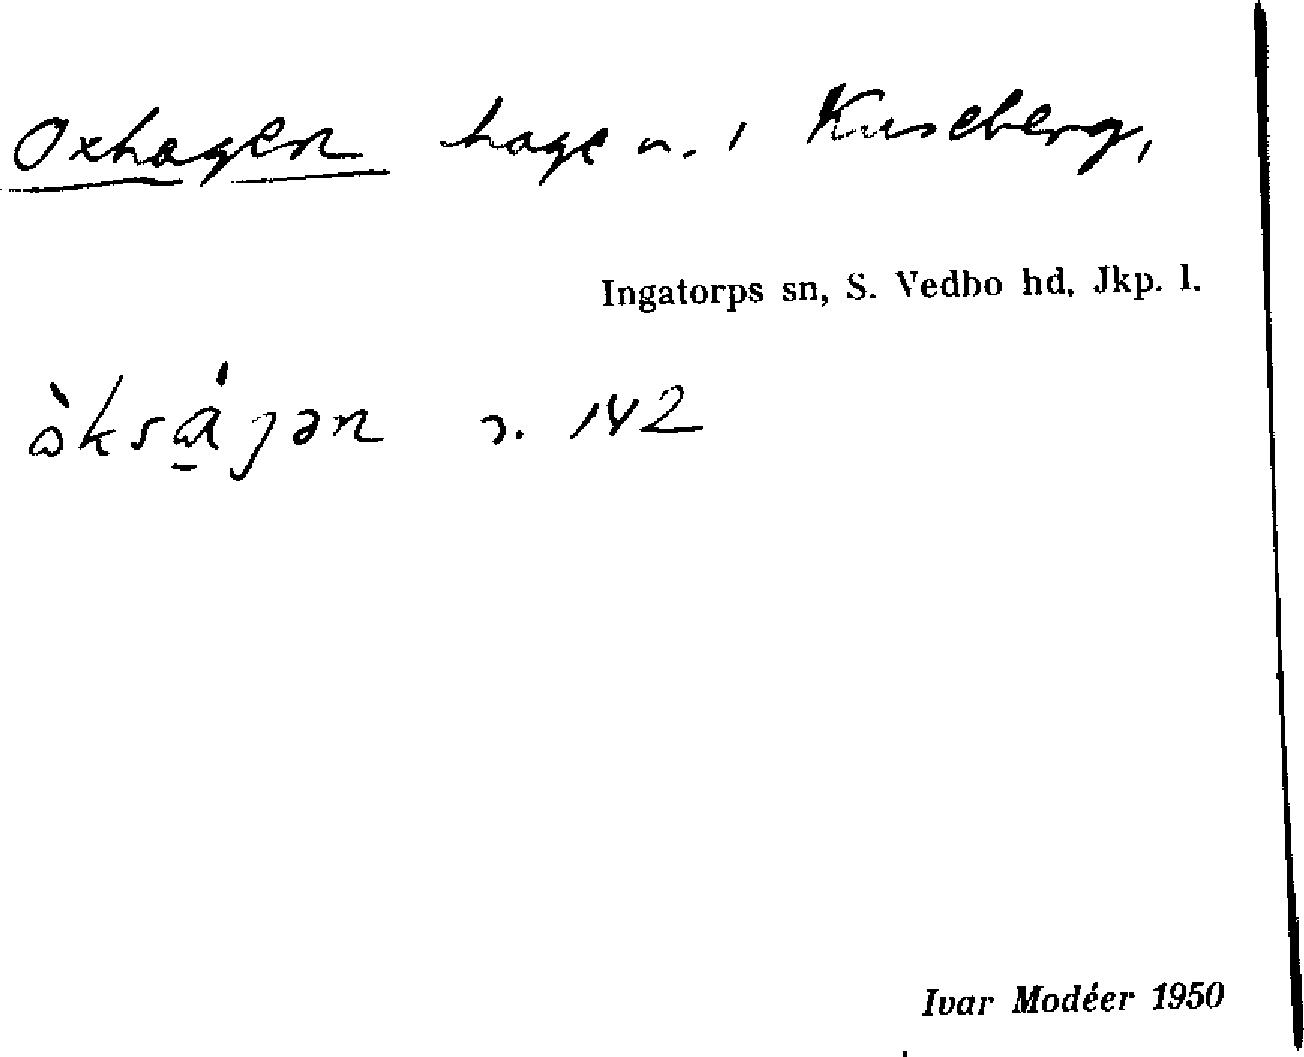 Oxhagen hage n. i Kuseberg,
Ingatorps sn, S. Vedbo hd, Jkp. l.
142
Ivar Modéer 1950